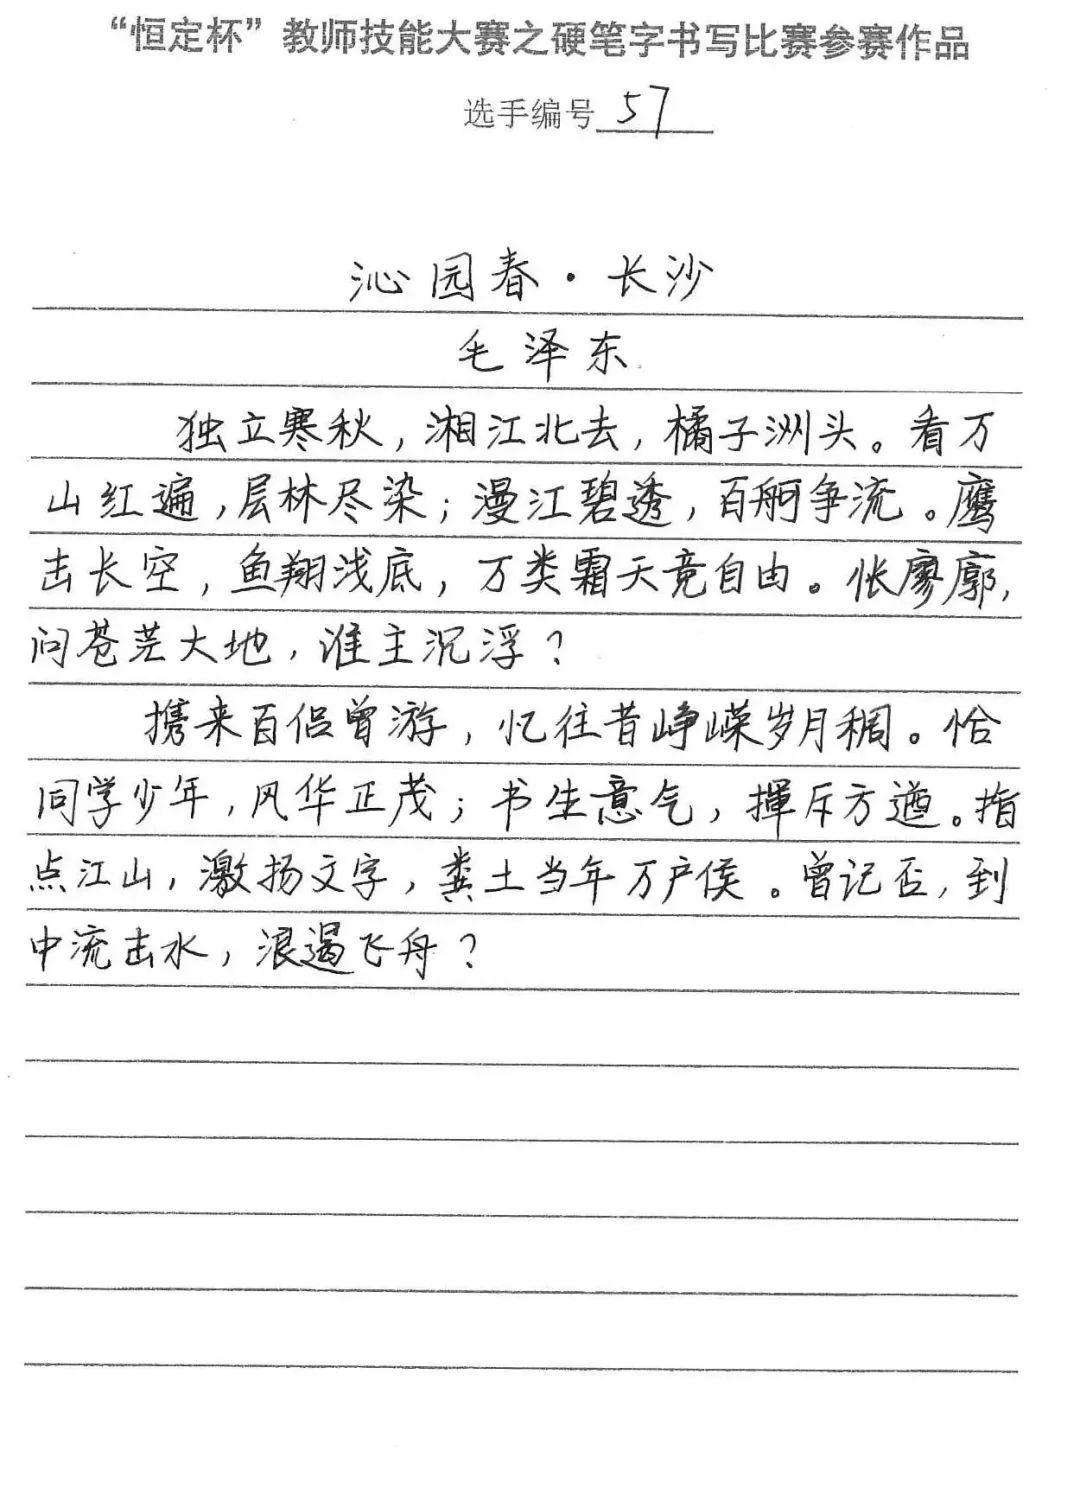 “恒定杯”教师技能大赛之硬笔字书写比赛参赛作品
选手编号 57
沁园春·长沙
毛泽东
独立寒秋，湘江北去，橘子洲头。看万
山红遍，层林尽染；漫江碧透，百舸争流。鹰
击长空，鱼翔浅底，万类霜天竞自由。怅廖廓，
问苍茫大地，谁主沉浮？
携来百侣曾游，忆往昔峥嵘岁月稠。恰
同学少年，风华正茂；书生意气，挥斥方遒。指
点江山，激扬文字，粪土当年万户侯。曾记否，到
中流击水，浪遏飞舟？